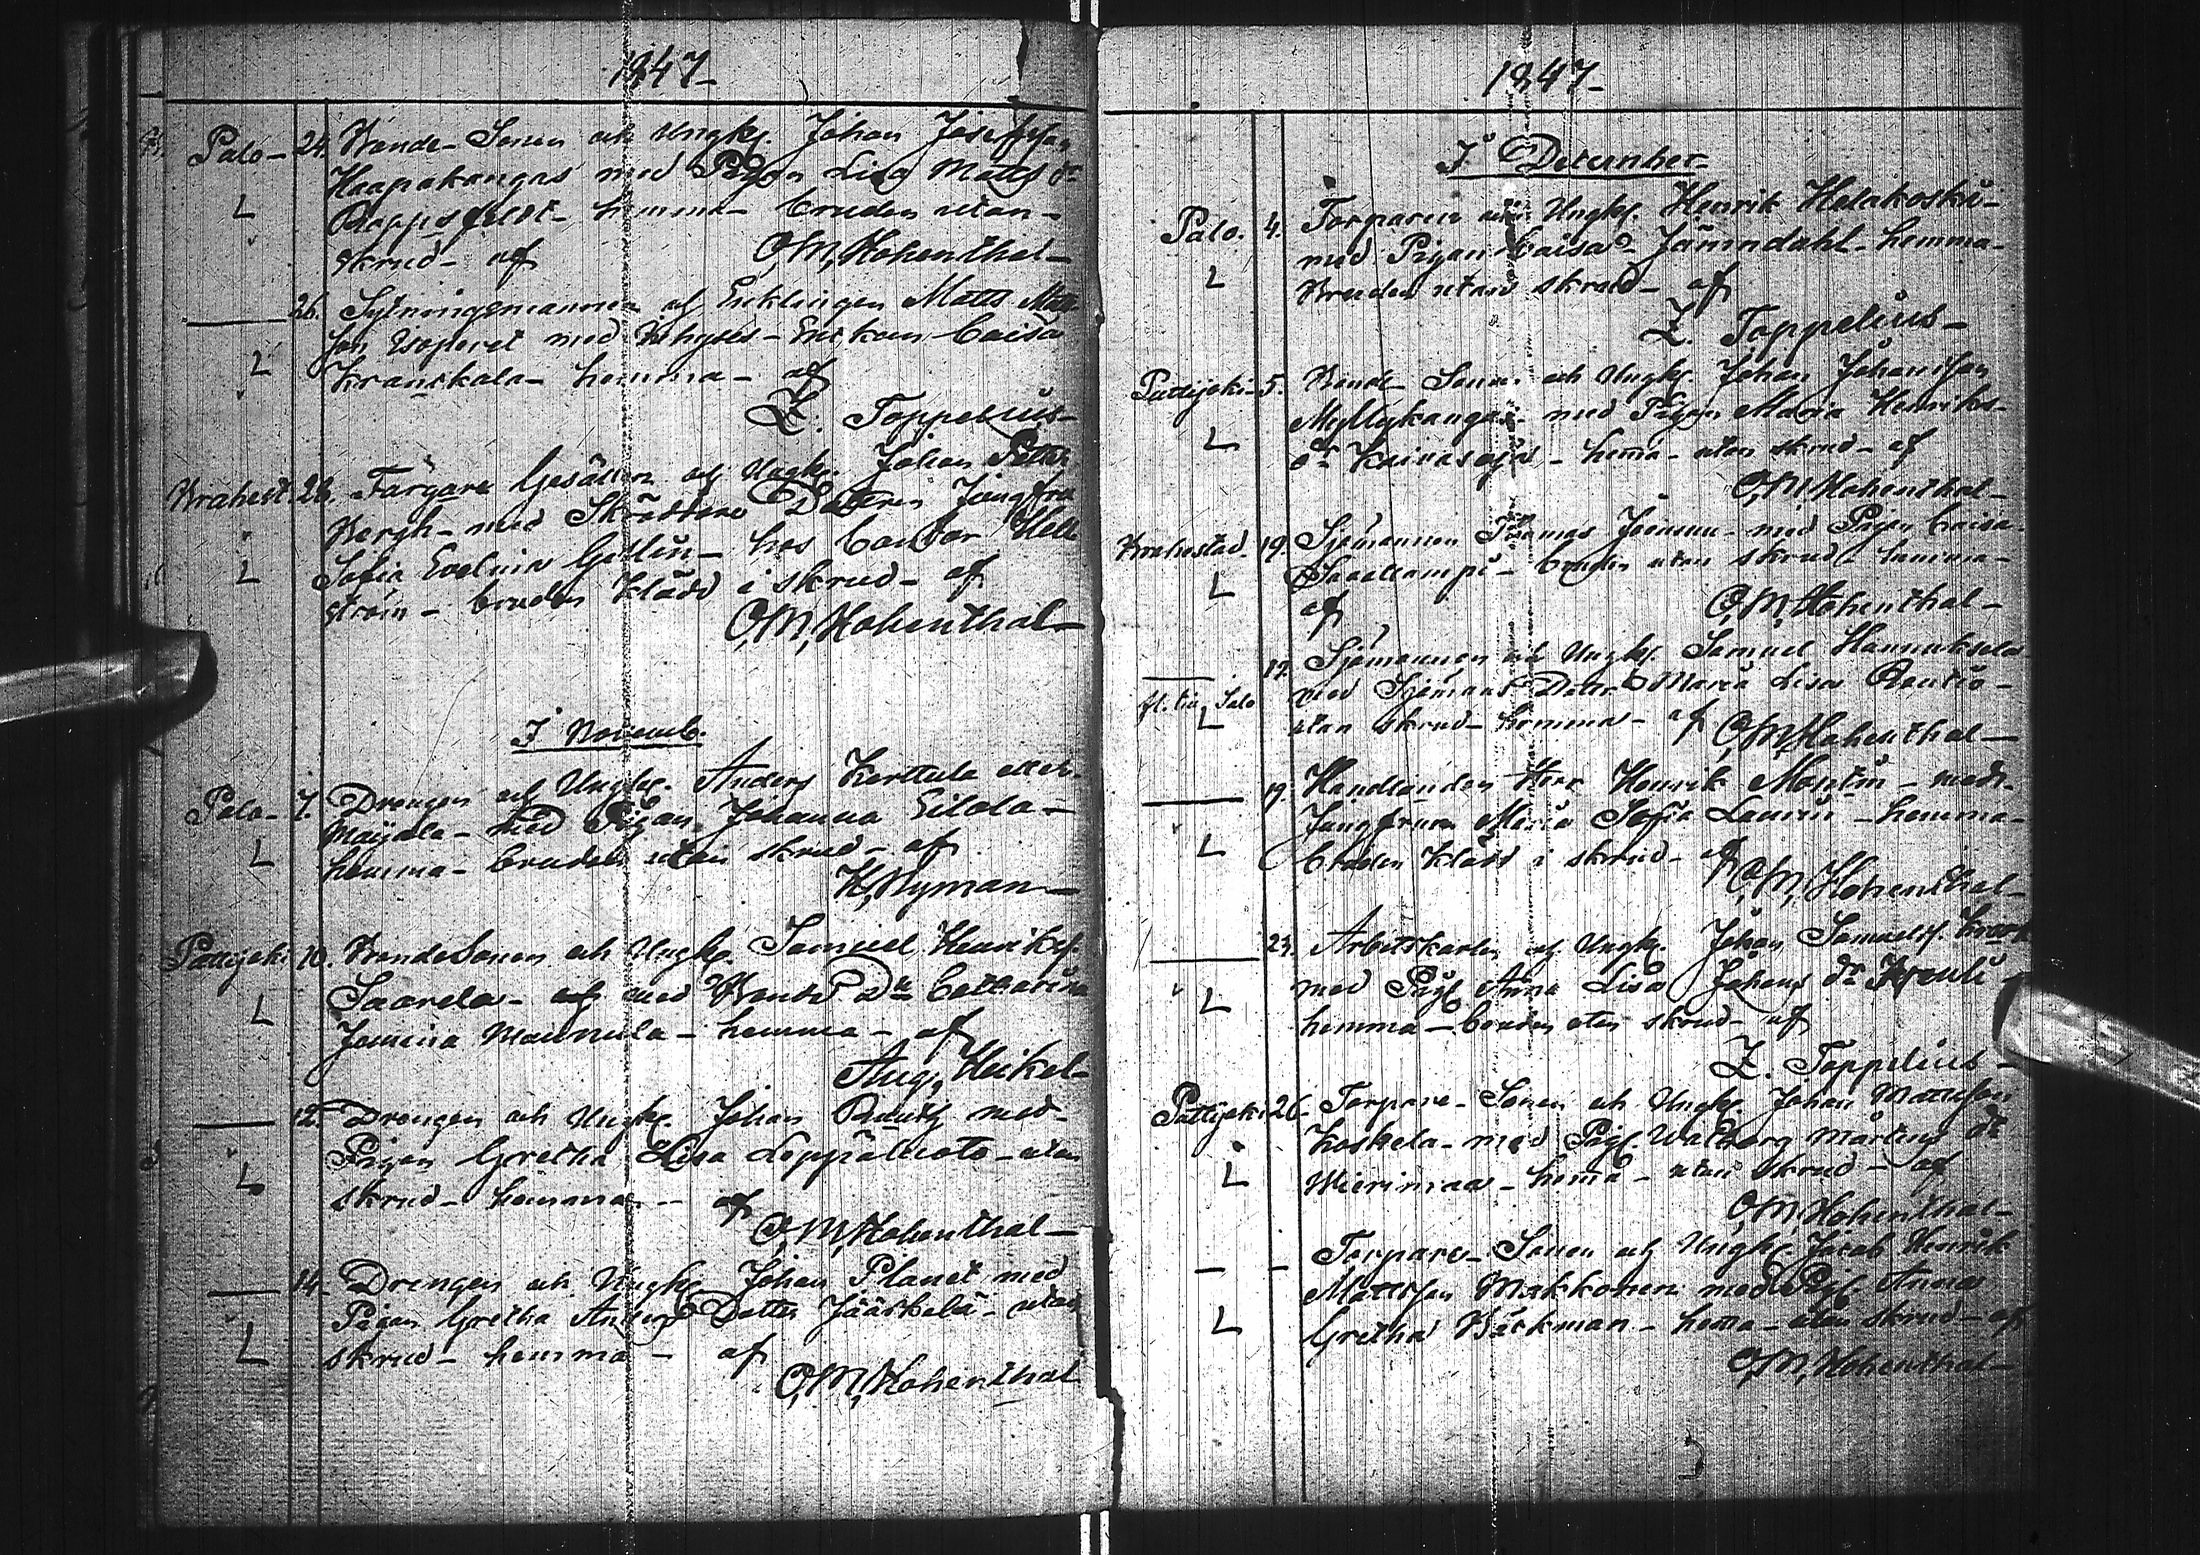 1847
Palo - 24. Bonde-Sonen och Ungkl. Johan Josefsson
Haapakangas med Pigan Lisa Matts dr
L hemma - bruden utan -
skrud - af O,M,Hohenthal -
26. Sytningsmannen och Enklingen Matts
son med Inhyses-Enkan Caisa
L Krankala - hemma - af
Z. Toppelius -
Brahest. 26. Färgare Gesällen och Ungkl. Johan Petter
Bergh - med Skräddare Dottren Jungfru
L Sofia Evelina - hos Cantor Hell
ström - bruden klädd i skrud - af
O,M,Hohenthal -
I Novemb.
Palo - 7. Drengen och Ungkl. Anders Kerttula eller
Maijala - med Pigan Johanna Eilola -
L hemma - bruden utan skrud - af
H,Nyman -
Pattijoki 10. BondeSonen och Ungkl. Samuel Henriks.
Saarela - med Bonde Dr Catharina
L Jemina Maunula - hemma - af
Aug, Heikel -
12. Drengen och Ungkl. Johan med -
Pigan Gretha Lisa Leppäluoto - utan
L skrud - hemma - af
O,M,Hohenthal -
14. Drengen och Ungkl. Johan Planet med
Pigan Gretha Anders Dotter Jääskelä - utan
L skrud - hemma - af
O,M,Hohenthal
1847
I December
Palo. 4. Torparen och Ungkl. Henrik Helakoski -
med Pigan Caisa Jämndahl - hemma -
L Bruden utan skrud - af
Z. Toppelius -
Pattijoki - 5. Bonde Sonen och Ungkl. Johan Johansson
Myllykangas - med Pigan Maria Henriks -
L dr - hema - utan skrud - af
O,M,Hohenthal -
Brahestad. 19. Sjömannen Thomas - med Pigan Caisa
L - bruden utan skrud - hemma -
af O,M,Hohenthal -
19. Sjömannen och Ungkl. Samuel Hannuksela
fl. till Salo med Sjömans Dottr Maria Lisa Rautio -
L utan skrud - hemma - af O,M,Hohenthal -
19. Handlanden Herr Henrik Montin - med -
Jungfrun Maria Sofia - hemma -
L bruden klädd i skrud - af
O,M,Hohenthal -
23. Arbetskarlen och Ungkl. Johan Samuels.
med Pig. Anna Lisa Johans dr
L hemma - bruden utan skrud - af
Z. Toppelius -
Pattijoki 26. Torpare-Sonen och Ungkl. Johan Mattsson
Koskela - med Pig. Walborg Mårtens dr
L Wierimaa - hema - utan skrud - af
O,M,Hohenthal -
Torpare-Sonen och Ungkl. Jacob Henrik
Mattsson Makkonen med Pig. Anna
L Gretha Bäckman - hema - utan skrud - af
O,M,Hohenthal -